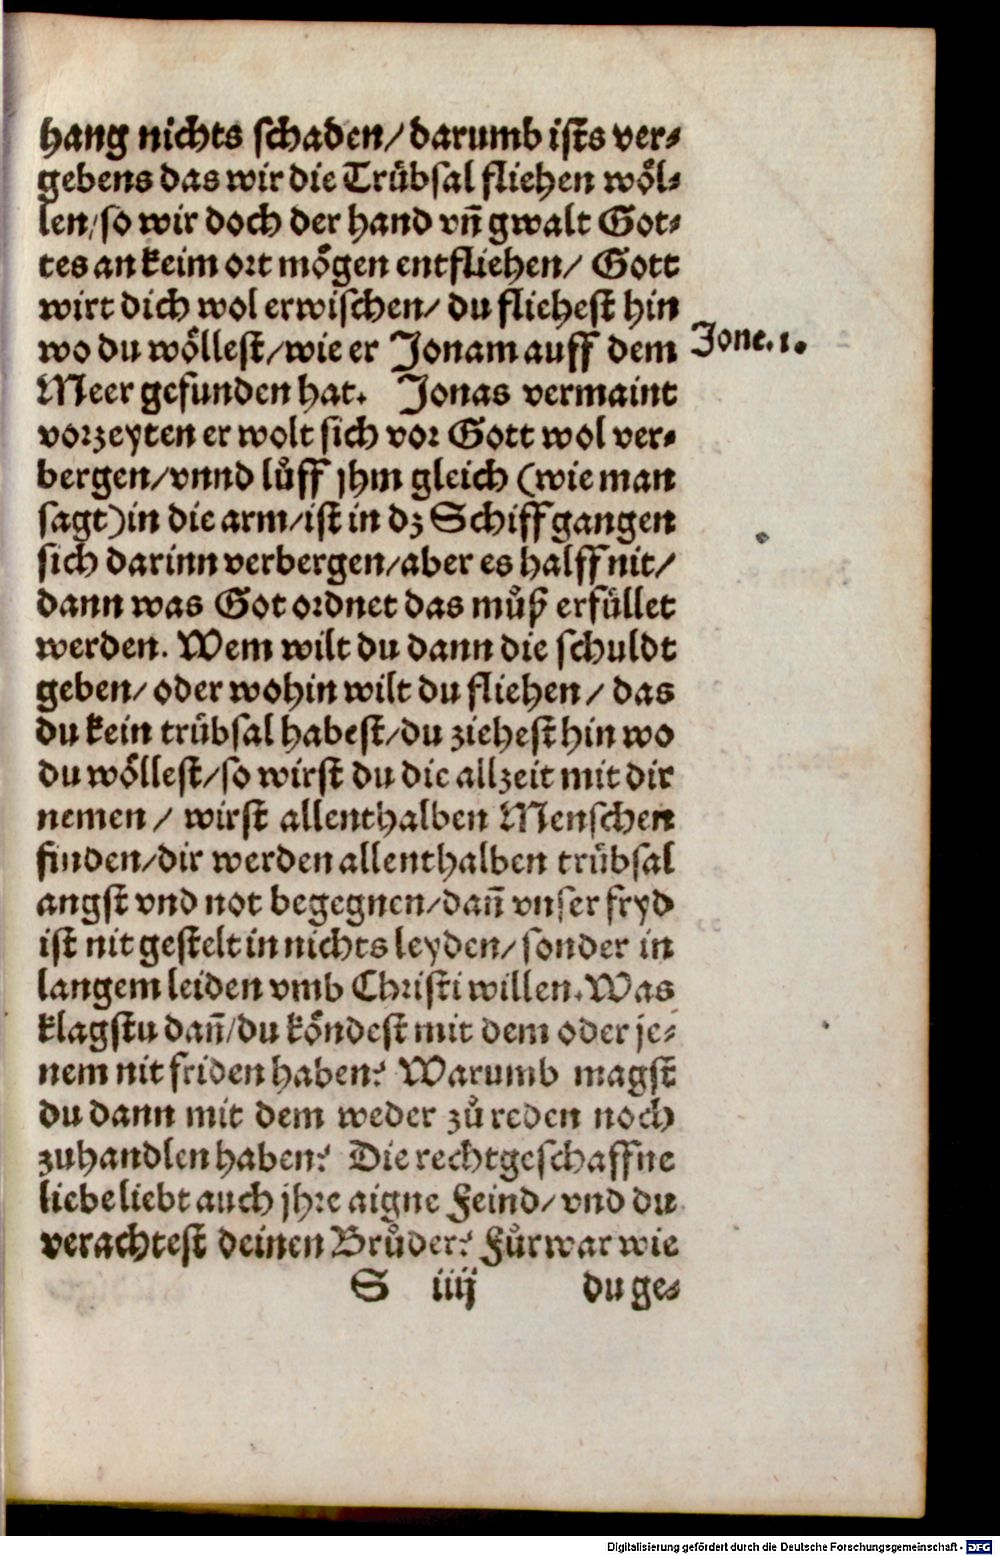 hang nichts schaden/ darumb ists ver⸗
gebens das wir die Trübsal fliehen wöl⸗
len/ so wir doch der hand vñ gwalt Got⸗
tes an keim ort mögen entfliehen/ Gott
wirt dich wol erwischen/ du fliehest hin
wo du wöllest/ wie er Jonam auff dem
Jone. 1.
Meer gefunden hat. Jonas vermaint
vorzeyten er wolt sich vor Gott wol ver⸗
bergen/ vnnd lůff jhm gleich (wie man
sagt) in die arm/ ist in dz Schiff gangen
sich darinn verbergen/ aber es halff nit/
dann was Got ordnet das můß erfüllet
werden. Wem wilt du dann die schuldt
geben/ oder wohin wilt du fliehen/ das
du kein trübsal habest/ du ziehest hin wo
du wöllest/ so wirst du die allzeit mit dir
nemen/ wirst allenthalben Menschen
finden/ dir werden allenthalben trübsal
angst vnd not begegnen/ dañ vnser fryd
ist nit gestelt in nichts leyden/ sonder in
langem leiden vmb Christi willen. Was
klagstu dañ/ du köndest mit dem oder je⸗
nem nit friden haben? Warumb magst
du dann mit dem weder zů reden noch
zuhandlen haben? Die rechtgeschaffne
liebe liebt auch jhre aigne Feind/ vnd du
verachtest deinen Brůder? Fůrwar wie
S iiij du ge⸗
Digitalisierung gefördert durch die Deutsche Forschungsgemeinschaft - DFG